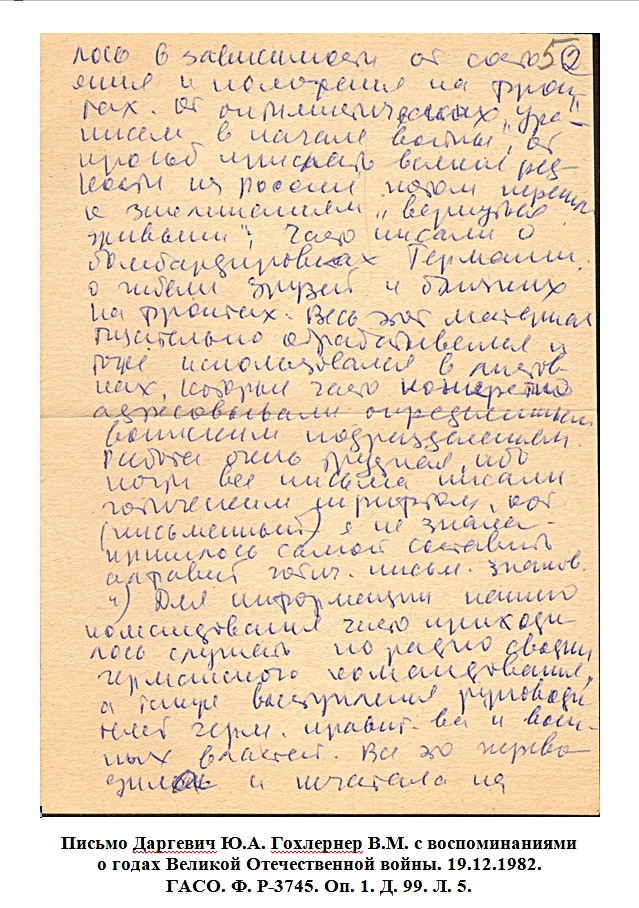 лось в зависимости от состо 5 2
яния и положения на фрон-
тах. От оптимистических „ура"-
писем в начале войны, от
просьб прислать всякие ред-
кости из России потом переш
к заклинаниям „вернуться
живыми"; часто писали о
бомбардировках Германии,
о гибели друзей и близких
на фронтах. Весь этот материал
тщательно обрабатывался и
тоже использовался в листов-
ках, которые часто конкретно
адресовывали определенным
воинским подразделениям.
Работа очень трудная, ибо
почти все письма писали
готическим шрифтом, кот
(письменный) я не знала -
пришлось самой составить
алфавит готич. письм. знаков.
4) Для информации нашего
командования часто приходи-
лось слушать по радио сводки
германского командования,
а также выступления руководи
телей герм. правит-ва и воен-
ных властей. Все это перево-
дила и печатала на
Письмо Даргевич Ю.А. Гохлернер В.М. с воспоминаниями
о годах Великой Отечественной войны. 19.12.1982.
ГАСО. Ф. Р-3745. Оп. 1. Д. 99. Л. 5.